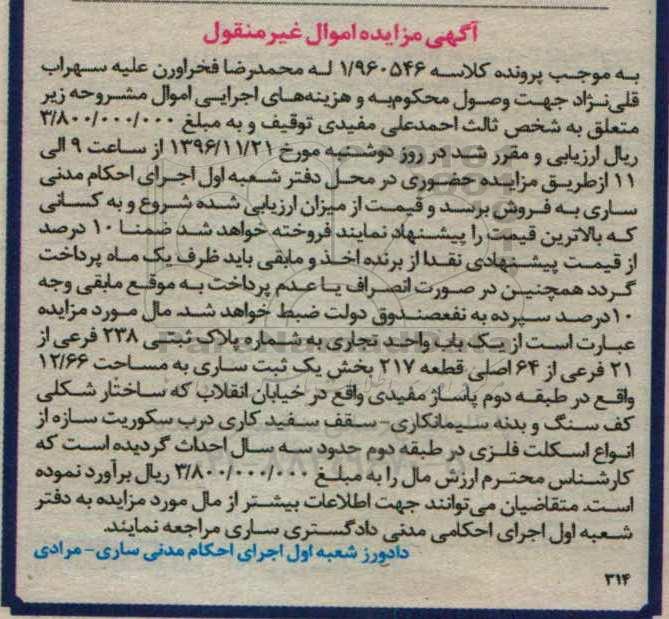 آگهی مزایده اموال غیرمنقول
به موجب پرونده کلاسه ۱/۹۶۰۵۴۶ له محمدرضا فخراورن علیه سهراب
قلی‌نژاد جهت وصول محکوم‌به و هزینه‌های اجرایی اموال مشروحه زیر
متعلق به شخص ثالث احمدعلی مفیدی توقیف و به مبلغ ۳/۸۰۰/۰۰۰/۰۰۰
ریال ارزیابی و مقرر شد در روز دوشنبه مورخ ۱۳۹۶/۱۱/۲۱ از ساعت ۹ الی
۱۱ ازطریق مزایده حضوری در محل دفتر شعبه اول اجرای احکام مدنی
ساری به فروش برسد و قیمت از میزان ارزیابی شده شروع و به کسانی
که بالاترین قیمت را پیشنهاد نمایند فروخته خواهد شد ضمنا ۱۰ درصد
از قیمت پیشنهادی نقدا از برنده اخذ و مابقی باید ظرف یک ماه پرداخت
گردد همچنین در صورت انصراف یا عدم پرداخت به موقع مابقی وجه
۱۰درصد سپرده به نفعصندوق دولت ضبط خواهد شد. مال مورد مزایده
عبارت است از یک باب واحد تجاری به شماره پلاک ثبتی ۲۳۸ فرعی از
۲۱ فرعی از ۶۴ اصلی قطعه ۲۱۷ بخش یک ثبت ساری به مساحت ۱۲/۶۶
واقع در طبقه دوم پاساژ مفیدی واقع در خیابان انقلاب که ساختار شکلی
کف سنگ و بدنه سلیمانکاری- سقف سفید کاری درب سکوریت سازه از
انواع اسکلت فلزی در طبقه دوم حدود سه سال احداث گردیده است که
کارشناس محترم ارزش مال را به مبلغ ۳/۸۰۰/۰۰۰/۰۰۰ ریال برآورد نموده
است. متقاضیان می‌توانند جهت اطلاعات بیشتر از مال مورد مزایده به دفتر
شعبه اول اجرای احکامی مدنی دادگستری ساری مراجعه نمایند.
دادورز شعبه اول اجرای احکام مدنی ساری- مرادی
۳۱۴